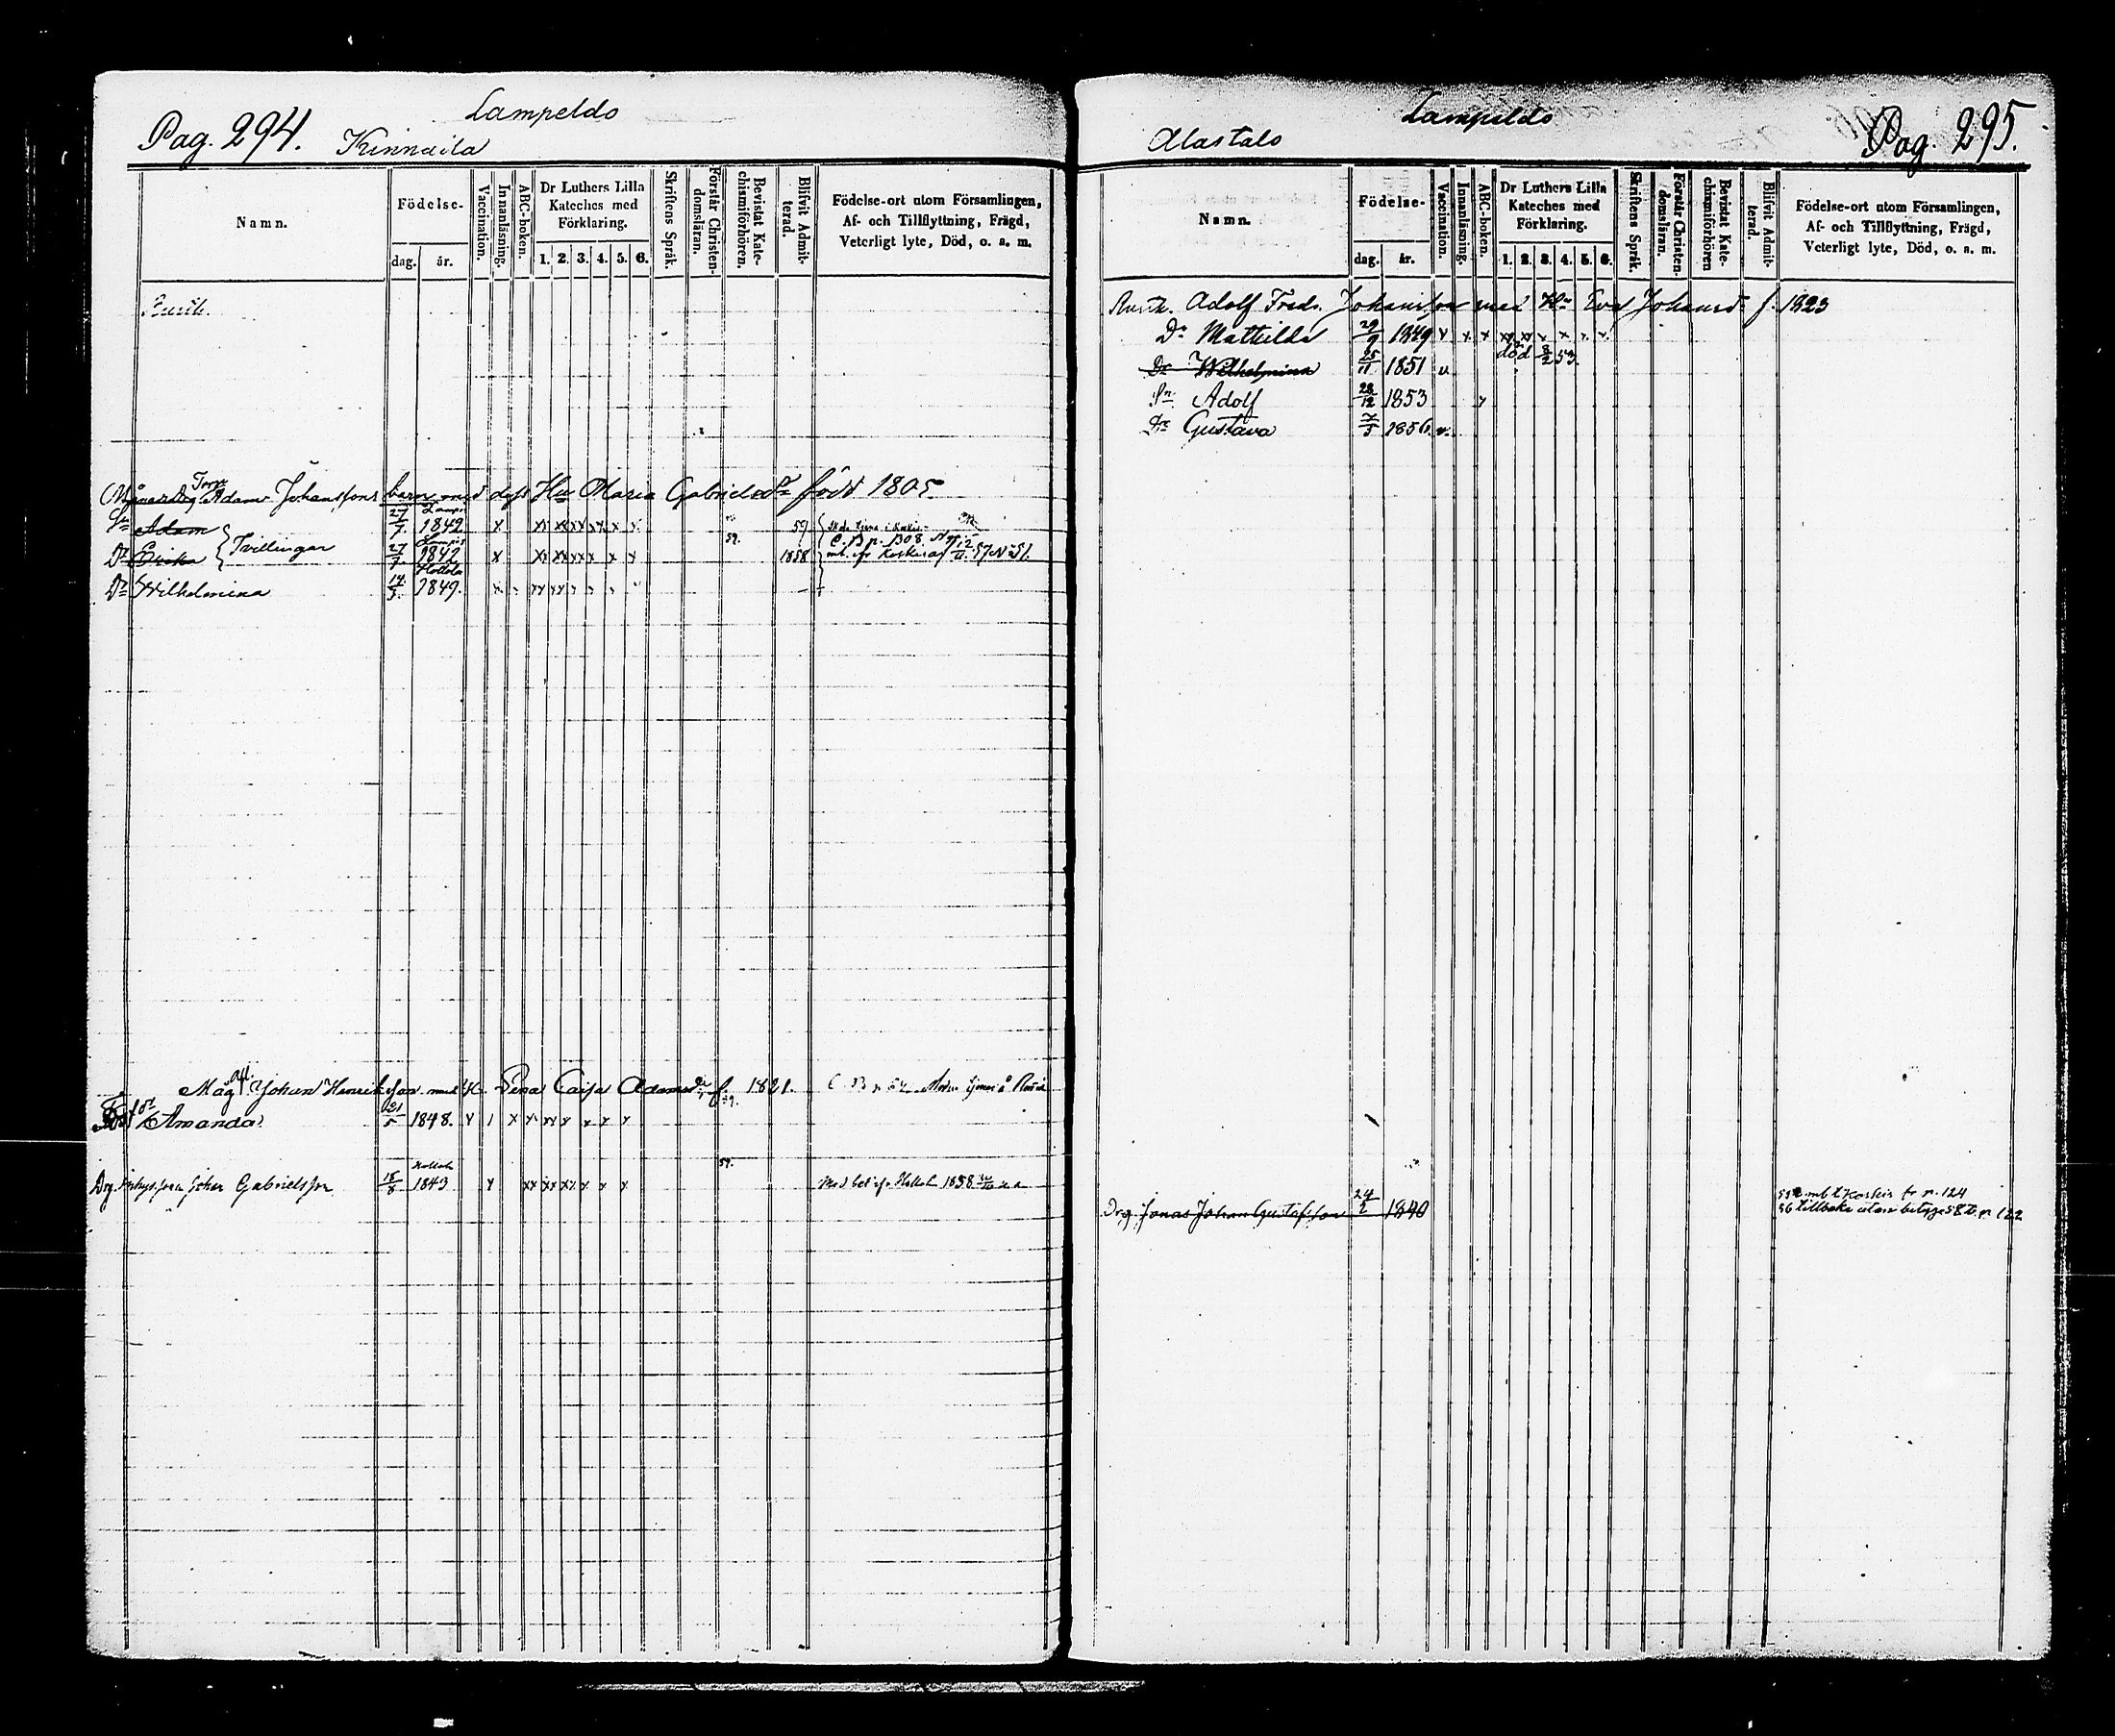 Pag. 294. Lampeldo
Kinnaila
Namn.
Födelse-
dag. år.
Vaccination.
Innanläsning.
ABC-boken.
Dr Luthers Lilla Kateches med Förklaring.
1. 2. 3. 4. 5. 6.
Skriftens Språk.
Förstår Christendomsläran.
Bevistat Katechismiförhören.
Blifvit Admitterad.
Födelse-ort utom Församlingen,
Af- och Tillflyttning, Frägd,
Veterligt lyte, Död, o. s. m.
Rusth.
Torp. Adam Johanssons barn med dess Hu Maria Gabrielsdr född 1805.
Sn Adam 27/7 1842 x 59
Tvillingar
Dr Erika 27/7 1842 x 59. 1858
Dr Wilhelmina 14/3 Hollola 1849.
Mag Johan Henriksson med H. Lena Caisa Adamsdr f. 1821.
Amanda 21/5 1848.
Drg. Johan Gabrielsson 18/8 1843 59. Med bet. ifr Hollola 1858
Lampeldo Pag. 295.
Alastalo
Namn.
Födelse-
dag. år.
Vaccination.
Innanläsning.
ABC-boken.
Dr Luthers Lilla Kateches med Förklaring.
1. 2. 3. 4. 5. 6.
Skriftens Språk.
Förstår Christendomsläran.
Bevistat Katechismiförhören
Blifvit Admitterad.
Födelse-ort utom Församlingen,
Af- och Tillflyttning, Frägd,
Veterligt lyte, Död, o. s. m.
Rusth. Adolf Fredr. Johansson med Hu Eva Johansdr f. 1823
Dr Mathilda 29/9 1849
Dr Wilhelmina 25/11 1851 v. död 8/2 53.
Sn Adolf 28/12 1853
Dr Gustava 1856 v.
Drg. Jonas Johan Gustafsson 24/2 1840 mb t Koskis fr n. 124
56 tillbaka utan betyg 58 t. p. 122